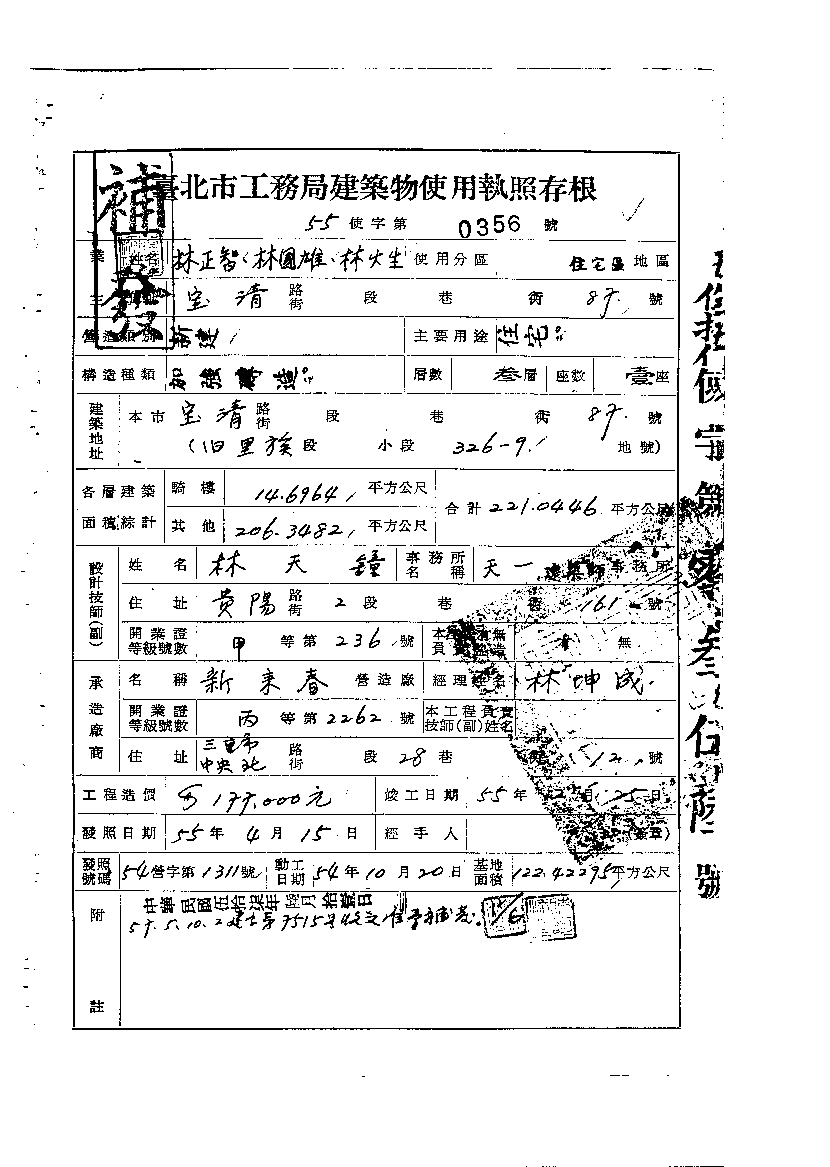 補發
臺北市工務局建築物使用執照存根
55 使字第 0356 號
業 姓名 林正智、林國雄、林火生 使用分區 住宅區 地區
主 宝清 路街 段 巷 衖 87 號
營造類別 新建 主要用途 住宅
構造種類 加強磚造 層數 叁層 座數 壹座
建築地址 本市 宝清 路街 段 巷 衖 87 號
(旧里族段 小段 326-9 地號)
各層建築面積綜計 騎樓 14.6964 平方公尺 合計 221.0446 平方公尺
其他 206.3482 平方公尺
設計技師(副) 姓名 林天鐘 事務所名稱 天一建築師事務所
住址 貴陽 路街 2段 巷 161 號
開業證等級號數 甲 等第 236 號 無
承造廠商 名稱 新来春 營造廠 經理姓名 林坤成
開業證等級號數 丙 等第 2262 號 本工程負責技師(副)姓名
住址 三重市中央北 路街 段 28巷 12 號
工程造價 177.000元 竣工日期 55年 月25日
發照日期 55年4月15日 經手人 (簽章)
發照號碼 54營字第1311號 動工日期 54年10月20日 基地面積 122.42295 平方公尺
附註 中華民國伍拾 年 月拾 日
57.5.10.
號